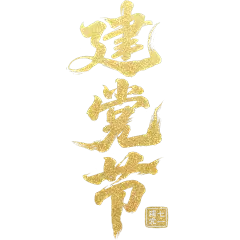 建党节